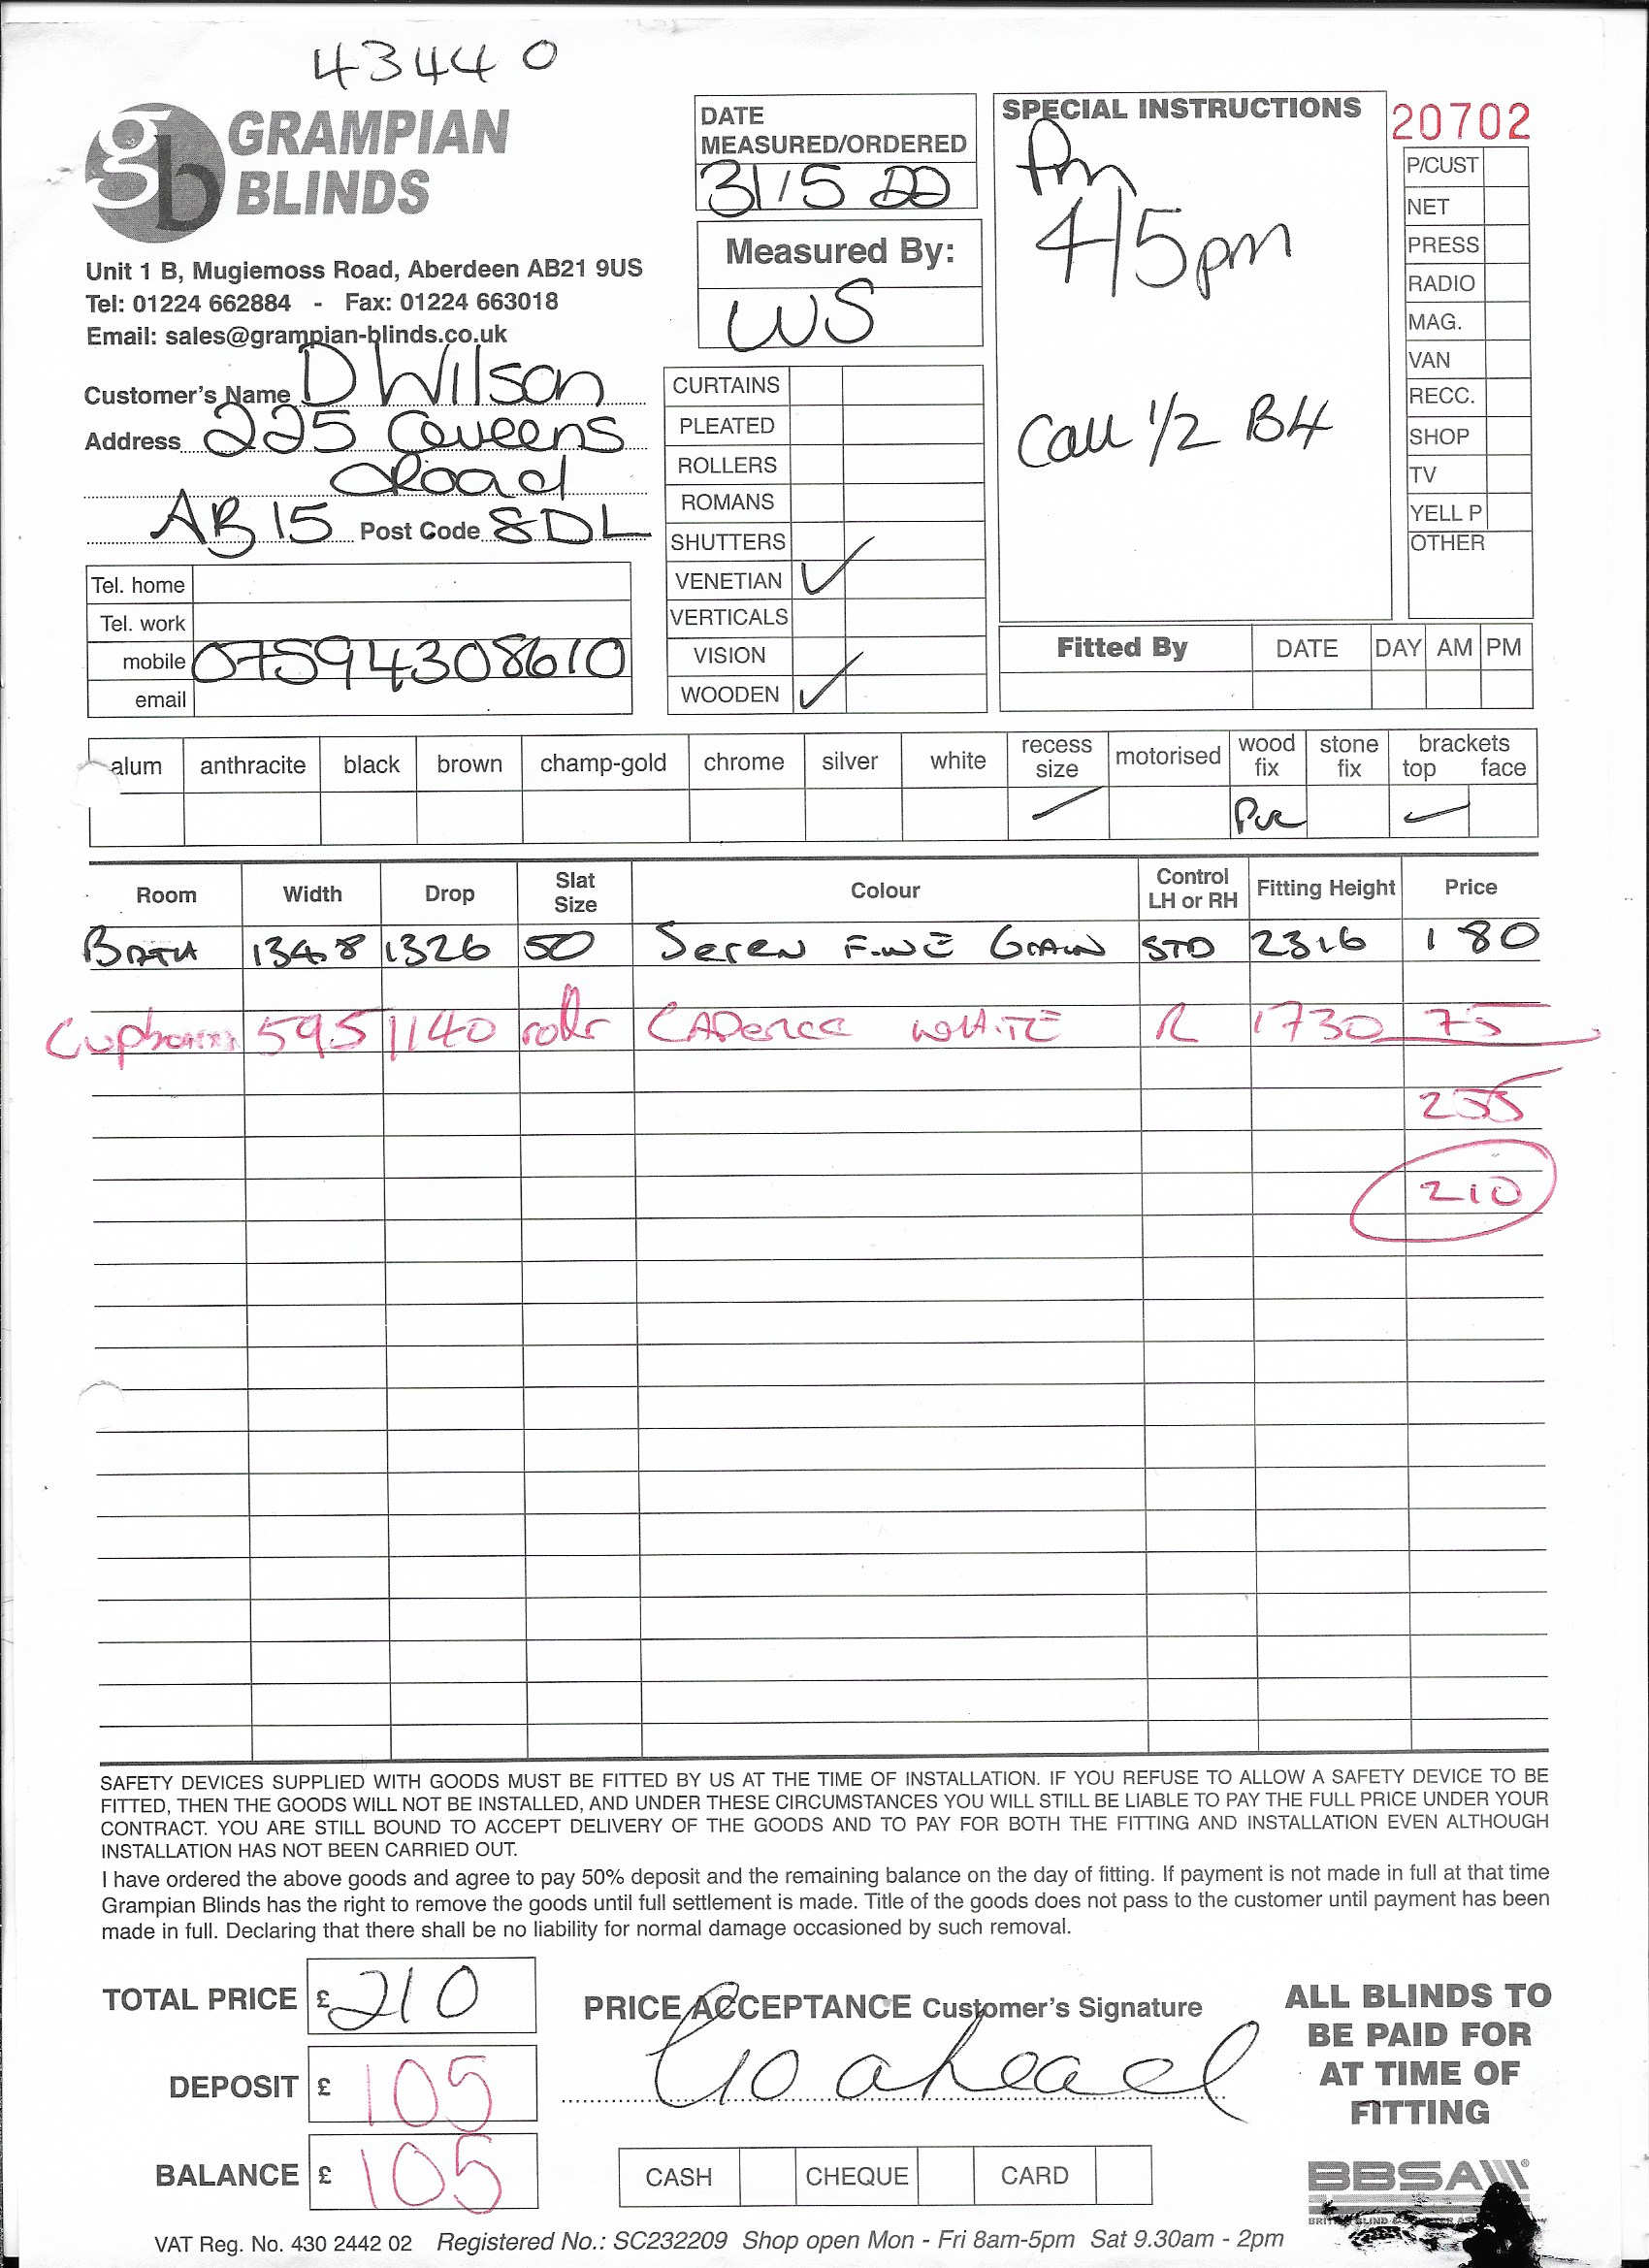 43440
GRAMPIAN
BLINDS
Unit 1 B, Mugiemoss Road, Aberdeen AB21 9US
Tel: 01224 662884 - Fax: 01224 663018
Email: sales@grampian-blinds.co.uk
Customer's Name D Wilson
Address 225 Queens
Road
AB15 Post Code 8DL
Tel. home
Tel. work
mobile 07594308610
email
DATE
MEASURED/ORDERED
31/5 22
Measured By:
WS
CURTAINS
PLEATED
ROLLERS
ROMANS
SHUTTERS
VENETIAN ✓
VERTICALS
VISION
WOODEN ✓
SPECIAL INSTRUCTIONS
Pm
4/5pm
Call 1/2 B4
20702
P/CUST
NET
PRESS
RADIO
MAG.
VAN
RECC.
SHOP
TV
YELL P
OTHER
Fitted By DATE DAY AM PM
alum anthracite black brown champ-gold chrome silver white recess size motorised wood fix stone fix brackets top face
Pvc
Room Width Drop Slat Size Colour Control LH or RH Fitting Height Price
BATH 1348 1326 50 Seren FINE GRAIN STD 2316 180
Cupboard 595 1140 rollr CADence WHITE R 1730 75
255
210
SAFETY DEVICES SUPPLIED WITH GOODS MUST BE FITTED BY US AT THE TIME OF INSTALLATION. IF YOU REFUSE TO ALLOW A SAFETY DEVICE TO BE
FITTED, THEN THE GOODS WILL NOT BE INSTALLED, AND UNDER THESE CIRCUMSTANCES YOU WILL STILL BE LIABLE TO PAY THE FULL PRICE UNDER YOUR
CONTRACT. YOU ARE STILL BOUND TO ACCEPT DELIVERY OF THE GOODS AND TO PAY FOR BOTH THE FITTING AND INSTALLATION EVEN ALTHOUGH
INSTALLATION HAS NOT BEEN CARRIED OUT.
I have ordered the above goods and agree to pay 50% deposit and the remaining balance on the day of fitting. If payment is not made in full at that time
Grampian Blinds has the right to remove the goods until full settlement is made. Title of the goods does not pass to the customer until payment has been
made in full. Declaring that there shall be no liability for normal damage occasioned by such removal.
TOTAL PRICE £ 210
DEPOSIT £ 105
BALANCE £ 105
PRICE ACCEPTANCE Customer's Signature
Go ahead
CASH CHEQUE CARD
ALL BLINDS TO
BE PAID FOR
AT TIME OF
FITTING
BBSA
VAT Reg. No. 430 2442 02 Registered No.: SC232209 Shop open Mon - Fri 8am-5pm Sat 9.30am - 2pm